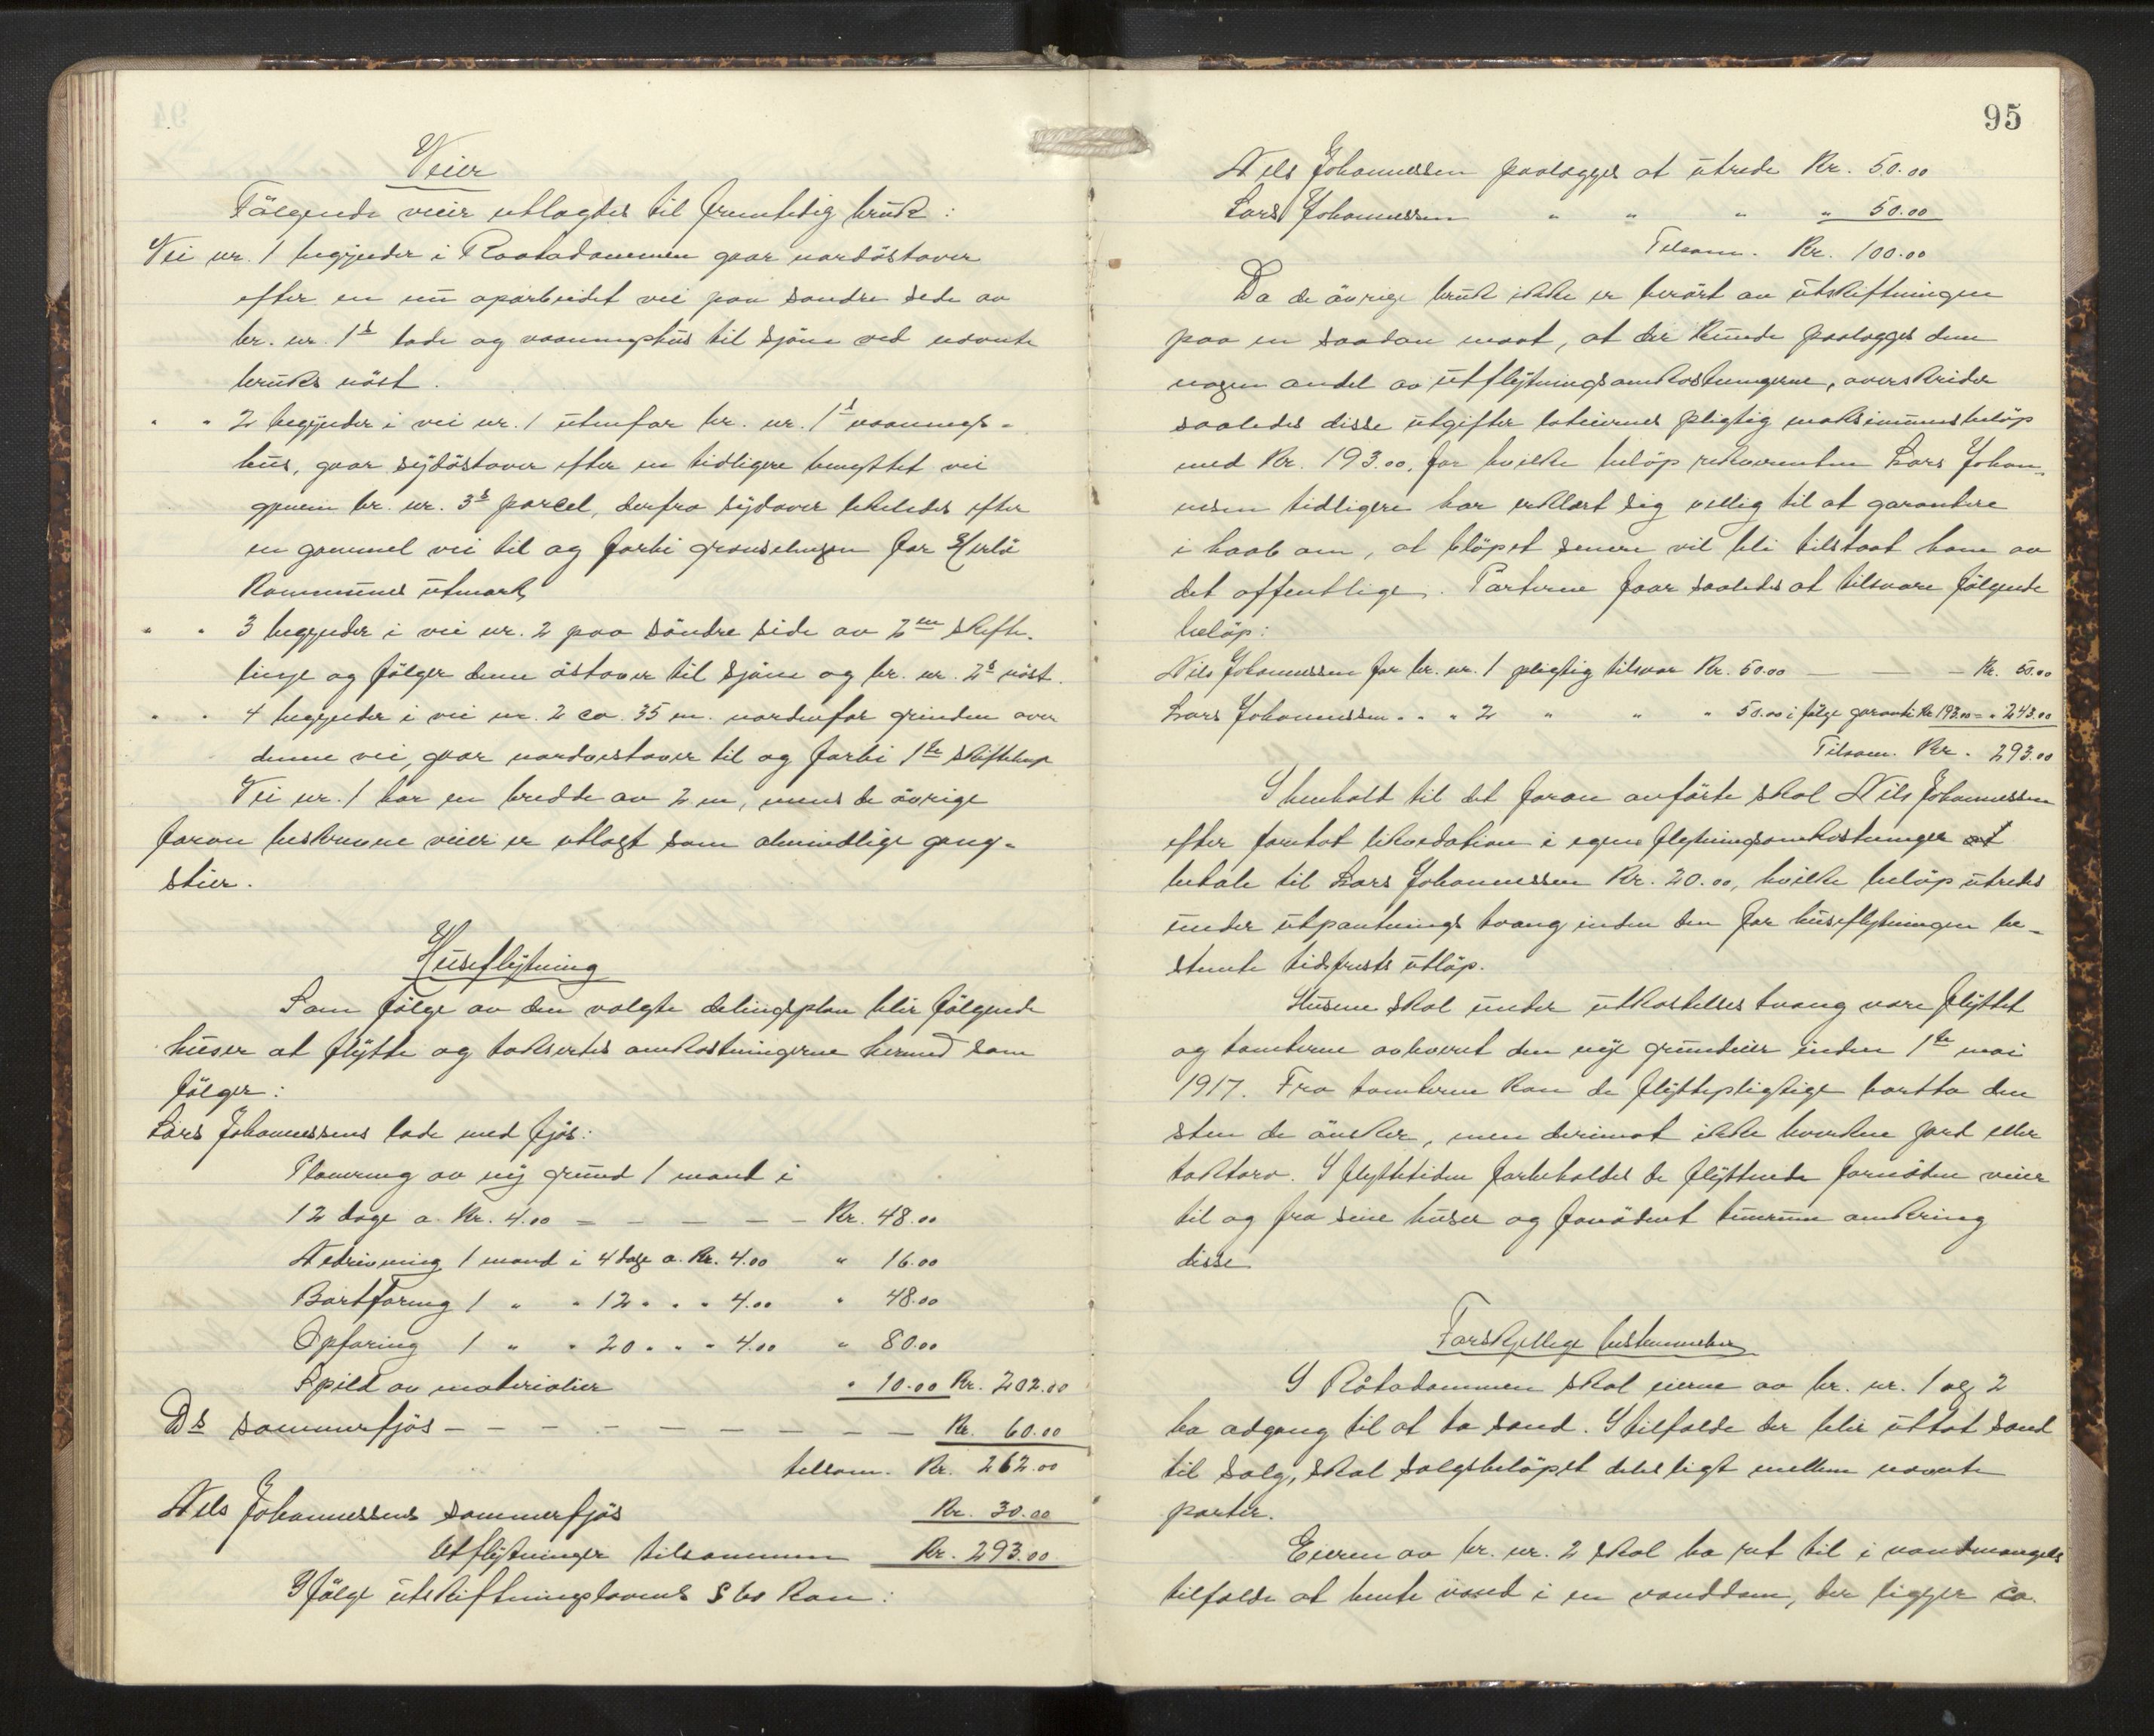 Veier
Følgende veier utlagdes til fremtidig bruk:
Vei nr. 1 begynder i Raatadammen gaar nordöstover
efter en nu oparbeidet vei paa söndre side av
br. nr. 1s lade og vaaningshus til sjöen ved nævnte
bruks nöst.
" " 2 begynder i vei nr. 1 utenfor br. nr. 1s vaanings-
hus, gaar sydöstover efter en tidligere benyttet vei
gjenem br. nr. 3s parcel, derfra sydover likeledes efter
en gammel vei til og forbi grænselinjen for Herlö
Kommunes utmark,
" " 3 begynder i vei nr. 2 paa söndre side av 2en skifte-
linje og fölger denne östover til sjöen og br. nr. 2s nöst.
" " 4 begynder i vei nr. 2 ca. 35 m. nordenfor grinden over
denne vei, gaar nordvestover til og forbi 1te skiftelinje
Vei nr. 1 har en bredde av 2 m, mens de övrige
foran beskrevne veier er utlagt som almindelige gang-
stier.
Huseflytning
Som fölge av den valgte delingsplan blir fölgende
huser at flytte og takseres omkostningerne hermed som
fölger:
Lars Johannessens lade med fjös:
Planering av ny grund 1 mand i
12 dage a. Kr. 4.00 - - - - - Kr. 48.00
Nedrivning 1 mand i 4 dage a. Kr. 4.00 " 16.00
Bortföring 1 " " 12 " " " 4.00 " 48.00
Opföring 1 " " 20 " " " 4.00 " 80.00
Spild av materialier " 10.00 Kr. 202.00
Ds sommerfjös - - - - - - - - - Kr. 60.00
tilsam. Kr. 262.00
Nils Johannessens sommerfjös Kr. 30.00
Utflytninger tilsammen Kr. 293.00
I fölge utskiftningslovens § 60 kan:
95
Nils Johannessen paalægges at utrede Kr. 50.00
Lars Johannessen " " " " 50.00
Tilsam. Kr. 100.00
Da de övrige bruk ikke er berört av utskiftningen
paa en saadan maat, at der kunde paalægges dem
nogen andel av utflytningsomkostningerne, overskrider
saaledes disse utgifter loteiernes pligtig maksimumsbelöp
med Kr. 193.00, for hvilke belöp rekvirenten Lars Johan-
nesen tidligere har erklært sig villig til at garantere
i haab om, at blöpet senere vil bli tilstaat ham av
det offentlige. Parterne faar saaledes at tilsvare fölgende
belöp:
Nils Johannessen for br. nr. 1 pligtig tilsvar Kr. 50.00 - - - Kr. 50.00
Lars Johannessen " " " 2 " " " 50.00 i fölge garanti Kr 193.00 = " 243.00
Tilsam. Kr. 293.00
I henhold til det foran anförte skal Nils Johannessen
efter foretat likvidation i egne flytningsomkostninger at
betale til Lars Johannessen Kr. 20.00, hvilke belöp utredes
under utpantnings tvang inden den for huseflytningen be-
stemte tidsfrists utlöp.
Husene skal under utkastelses tvang være flyttet
og tomterne avleveret den nye grundeier inden 1te mai
1917. Fra tomterne kan de flyttepligtige bortta den
sten de önsker, men derimot ikke hverken jord eller
taktorv. I flyttetiden forbeholdes de flyttende fornödne veier
til og fra sine huser og fornödent tunrum omkring
disse
Forskjellige bestemmelser
I Råtadammen skal eierne av br. nr. 1 og 2
ha adgang til at ta sand. I tilfælde der blir uttat sand
til salg, skal salgsbelöpet deles ligt mellem nævnte
parter.
Eieren av br. nr. 2 skal ha ret til i vandmangels
tilfælde at hente vand i en vanddam, der ligger ca.